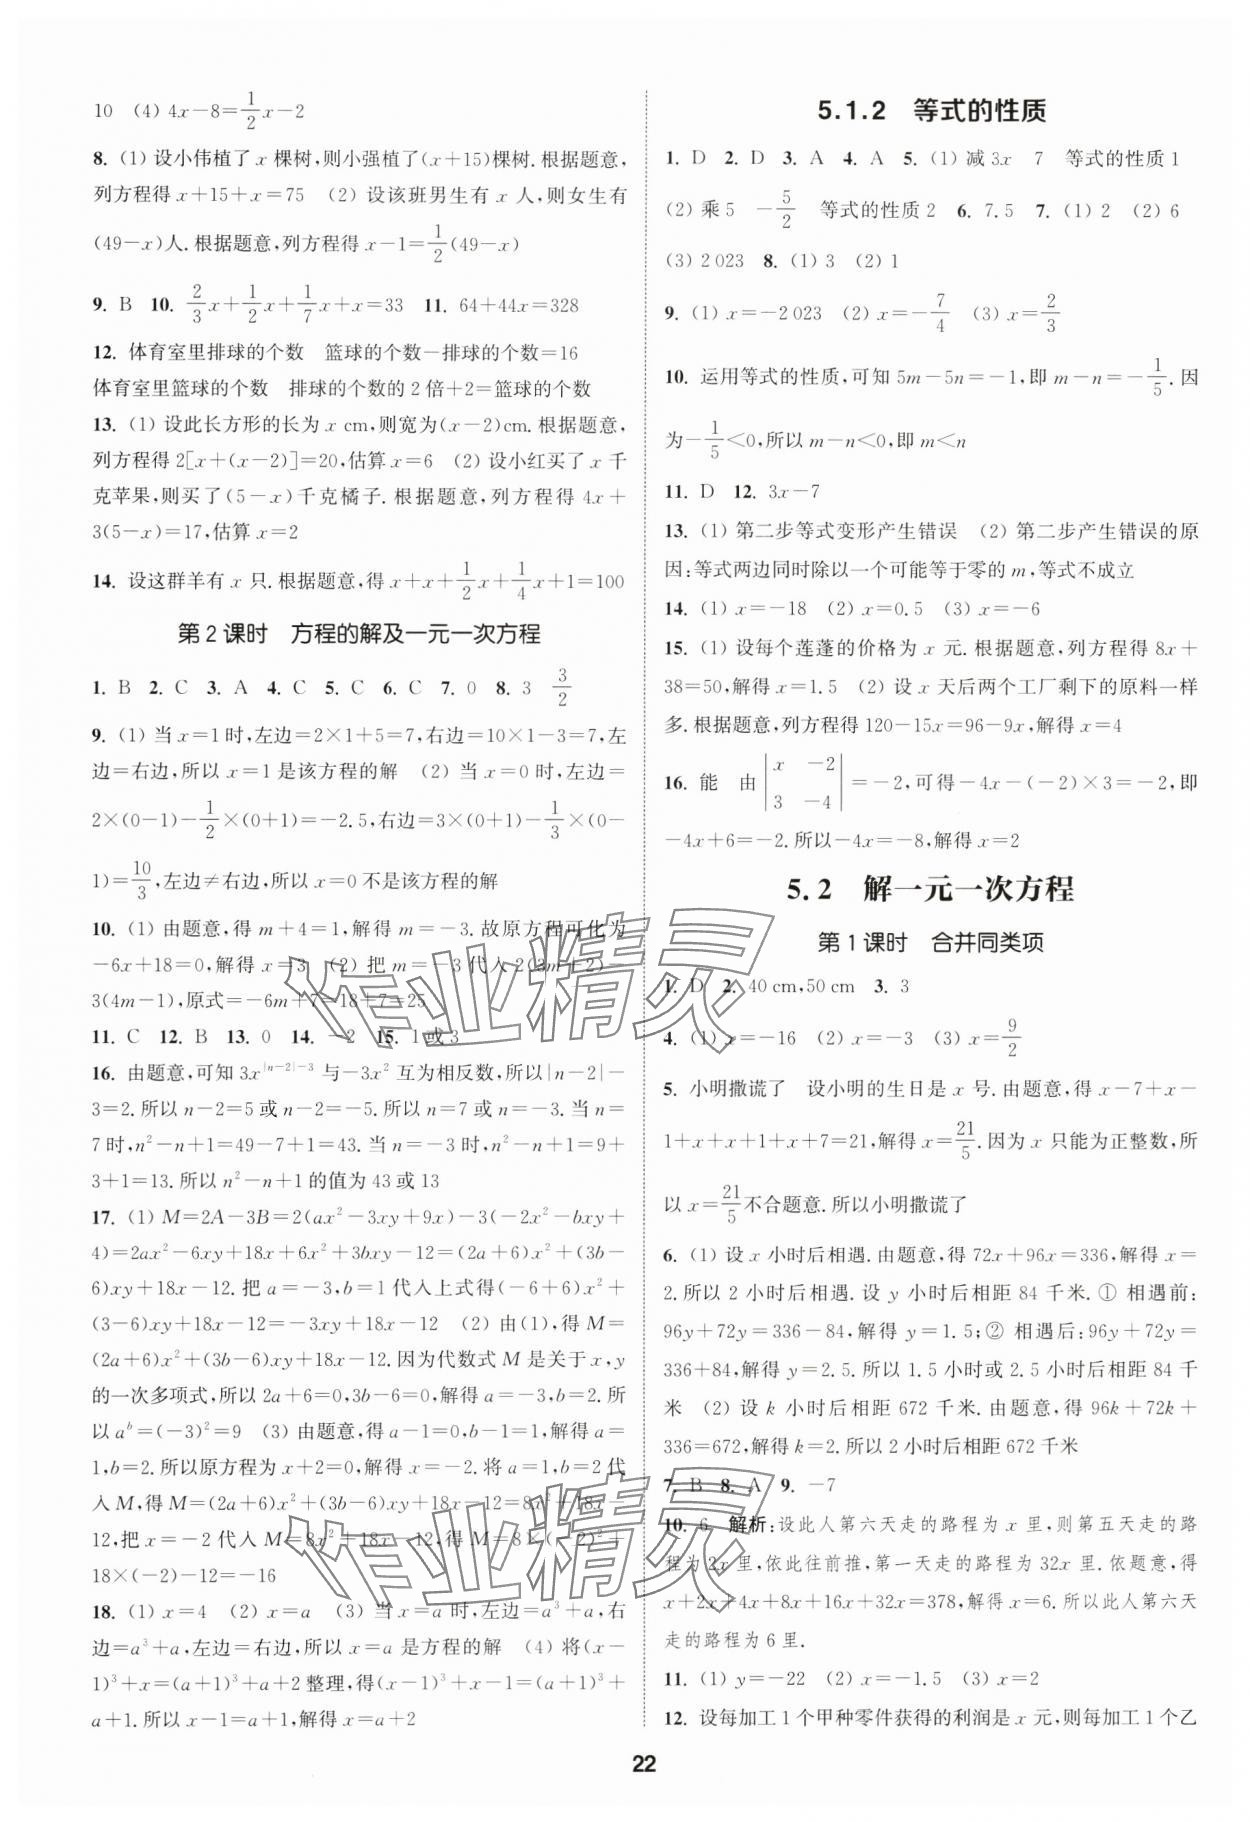 10 (4) 4x－8＝1/2x－2
8. (1) 设小伟植了 x 棵树,则小强植了(x＋15)棵树. 根据题意,
列方程得 x＋15＋x＝75 (2) 设该班男生有 x 人,则女生有
(49－x)人. 根据题意,列方程得 x－1＝1/2(49－x)
9. B 10. 2/3x＋1/2x＋1/7x＋x＝33 11. 64＋44x＝328
12. 体育室里排球的个数 篮球的个数－排球的个数＝16
体育室里篮球的个数 排球的个数的 2 倍＋2＝篮球的个数
13. (1) 设此长方形的长为 x cm,则宽为(x－2)cm. 根据题意,
列方程得 2[x＋(x－2)]＝20,估算 x＝6 (2) 设小红买了 x 千
克苹果,则买了(5－x)千克橘子. 根据题意,列方程得 4x＋
3(5－x)＝17,估算 x＝2
14. 设这群羊有 x 只. 根据题意,得 x＋x＋1/2x＋1/4x＋1＝100
第 2 课时 方程的解及一元一次方程
1. B 2. C 3. A 4. C 5. C 6. C 7. 0 8. 3 3/2
9. (1) 当 x＝1 时,左边＝2×1＋5＝7,右边＝10×1－3＝7,左
边＝右边,所以 x＝1 是该方程的解 (2) 当 x＝0 时,左边＝
2×(0－1)－1/2×(0＋1)＝－2.5,右边＝3×(0＋1)－1/3×(0－
1)＝10/3,左边≠右边,所以 x＝0 不是该方程的解
10. (1) 由题意,得 m＋4＝1,解得 m＝－3. 故原方程可化为
－6x＋18＝0,解得 x＝3 (2) 把 m＝－3 代入 2(3m＋2)－
3(4m－1),原式＝－6m＋7＝18＋7＝25
11. C 12. B 13. 0 14. －2 15. 1 或 3
16. 由题意,可知 3x^|n－2|－3 与－3x² 互为相反数,所以|n－2|－
3＝2. 所以 n－2＝5 或 n－2＝－5. 所以 n＝7 或 n＝－3. 当 n＝
7 时,n²－n＋1＝49－7＋1＝43. 当 n＝－3 时,n²－n＋1＝9＋
3＋1＝13. 所以 n²－n＋1 的值为 43 或 13
17. (1) M＝2A－3B＝2(ax²－3xy＋9x)－3(－2x²－bxy＋
4)＝2ax²－6xy＋18x＋6x²＋3bxy－12＝(2a＋6)x²＋(3b－
6)xy＋18x－12. 把 a＝－3,b＝1 代入上式得(－6＋6)x²＋
(3－6)xy＋18x－12＝－3xy＋18x－12 (2) 由(1),得 M＝
(2a＋6)x²＋(3b－6)xy＋18x－12. 因为代数式 M 是关于 x,y
的一次多项式,所以 2a＋6＝0,3b－6＝0,解得 a＝－3,b＝2. 所
以 a^b＝(－3)²＝9 (3) 由题意,得 a－1＝0,b－1＝1,解得 a＝
1,b＝2. 所以原方程为 x＋2＝0,解得 x＝－2. 将 a＝1,b＝2 代
入 M,得 M＝(2a＋6)x²＋(3b－6)xy＋18x－12＝8x²＋18x－
12,把 x＝－2 代入 M＝8x²＋18x－12,得 M＝8×(－2)²＋
18×(－2)－12＝－16
18. (1) x＝4 (2) x＝a (3) 当 x＝a 时,左边＝a³＋a,右
边＝a³＋a,左边＝右边,所以 x＝a 是方程的解 (4) 将(x－
1)³＋x＝(a＋1)³＋a＋2 整理,得(x－1)³＋x－1＝(a＋1)³＋
a＋1. 所以 x－1＝a＋1,解得 x＝a＋2
5.1.2 等式的性质
1. D 2. D 3. A 4. A 5. (1) 减 3x 7 等式的性质 1
(2) 乘 5 －5/2 等式的性质 2 6. 7.5 7. (1) 2 (2) 6
(3) 2 023 8. (1) 3 (2) 1
9. (1) x＝－2 023 (2) x＝－7/4 (3) x＝2/3
10. 运用等式的性质,可知 5m－5n＝－1,即 m－n＝－1/5. 因
为－1/5＜0,所以 m－n＜0,即 m＜n
11. D 12. 3x－7
13. (1) 第二步等式变形产生错误 (2) 第二步产生错误的原
因:等式两边同时除以一个可能等于零的 m,等式不成立
14. (1) x＝－18 (2) x＝0.5 (3) x＝－6
15. (1) 设每个莲蓬的价格为 x 元. 根据题意,列方程得 8x＋
38＝50,解得 x＝1.5 (2) 设 x 天后两个工厂剩下的原料一样
多. 根据题意,列方程得 120－15x＝96－9x,解得 x＝4
16. 能 由 |x －2; 3 －4| ＝－2,可得－4x－(－2)×3＝－2,即
－4x＋6＝－2. 所以－4x＝－8,解得 x＝2
5.2 解一元一次方程
第 1 课时 合并同类项
1. D 2. 40 cm,50 cm 3. 3
4. (1) x＝－16 (2) x＝－3 (3) x＝9/2
5. 小明撒谎了 设小明的生日是 x 号. 由题意,得 x－7＋x－
1＋x＋x＋1＋x＋7＝21,解得 x＝21/5. 因为 x 只能为正整数,所
以 x＝21/5不合题意. 所以小明撒谎了
6. (1) 设 x 小时后相遇. 由题意,得 72x＋96x＝336,解得 x＝
2. 所以 2 小时后相遇. 设 y 小时后相距 84 千米. ① 相遇前:
96y＋72y＝336－84,解得 y＝1.5;② 相遇后:96y＋72y＝
336＋84,解得 y＝2.5. 所以 1.5 小时或 2.5 小时后相距 84 千
米 (2) 设 k 小时后相距 672 千米. 由题意,得 96k＋72k＋
336＝672,解得 k＝2. 所以 2 小时后相距 672 千米
7. B 8. A 9. －7
10. 6 解析:设此人第六天走的路程为 x 里,则第五天走的路
程为 2x 里,依此往前推,第一天走的路程为 32x 里. 依题意,得
x＋2x＋4x＋8x＋16x＋32x＝378,解得 x＝6. 所以此人第六天
走的路程为 6 里.
11. (1) y＝－22 (2) x＝－1.5 (3) x＝2
12. 设每加工 1 个甲种零件获得的利润是 x 元,则每加工 1 个乙
22
作业精灵
作业精灵